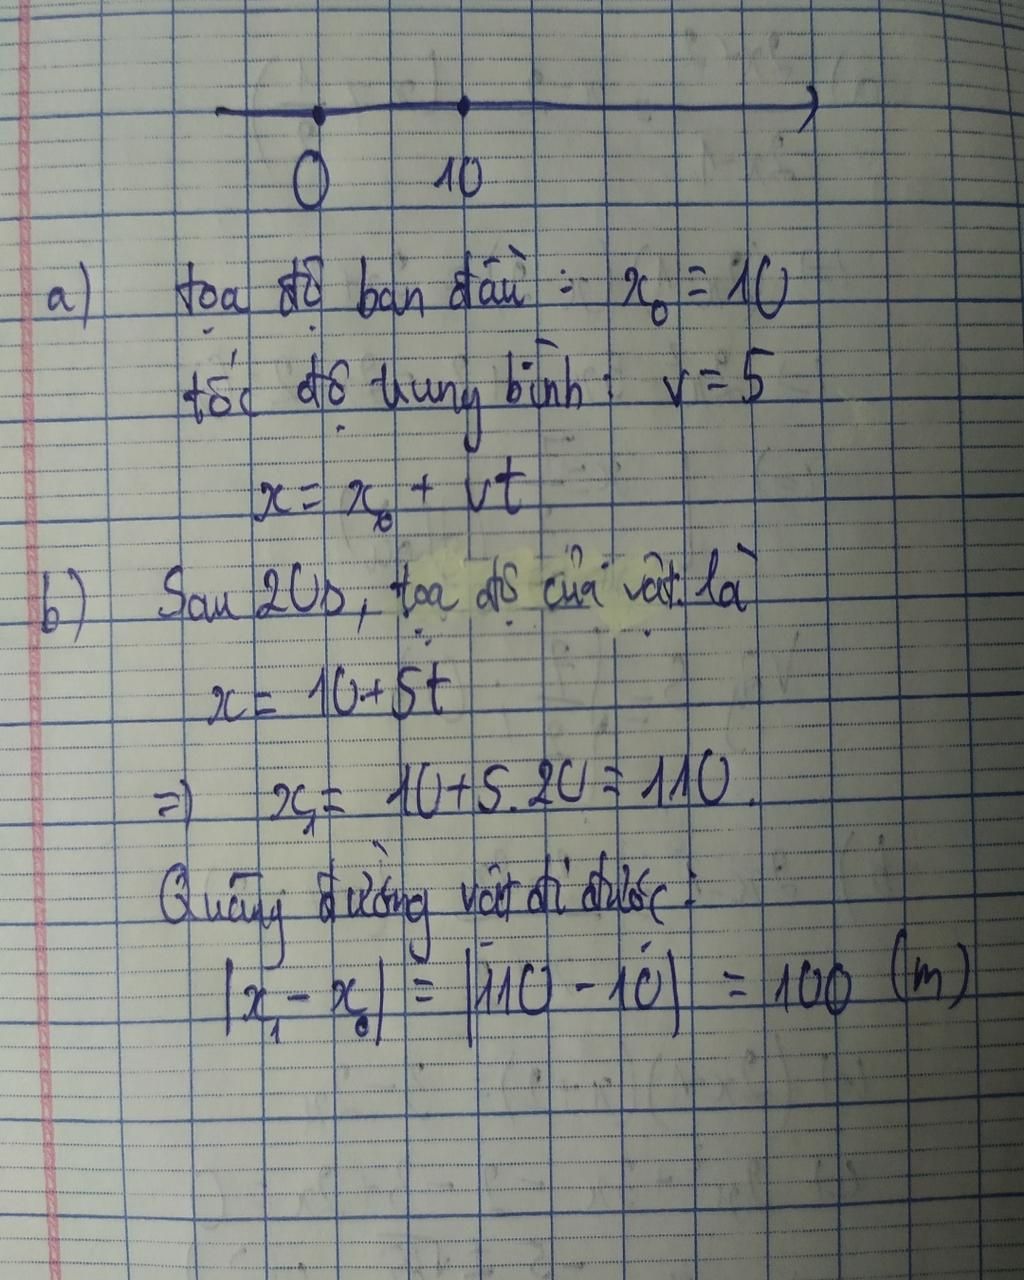 0 10
a) tọa độ ban đầu : x₀ = 10
tốc độ trung bình : v = 5
x = x₀ + vt
b) Sau 20s, tọa độ của vật là
x = 10 + 5t
=) x₁ = 10 + 5.20 = 110.
Quãng đường vật đi được :
|x₁ - x₀| = |110 - 10| = 100 (m)